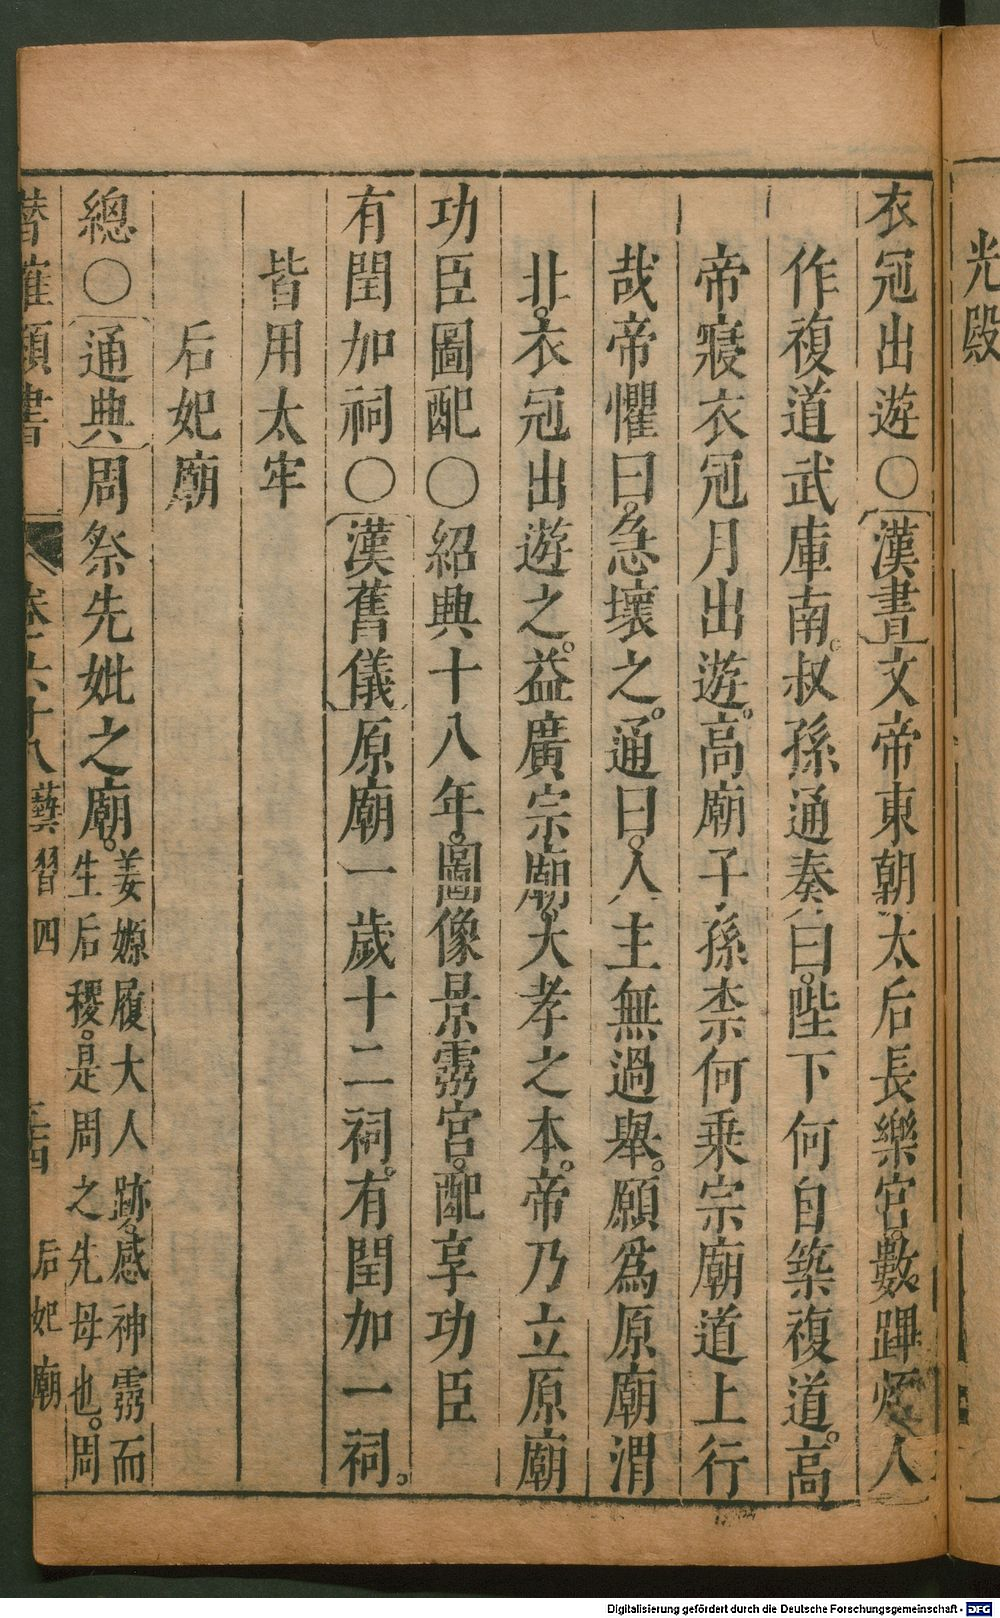 光殿
衣冠出遊○漢書文帝東朝太后長樂宮數蹕煩人
作複道武庫南叔孫通奏曰陛下何自築複道高
帝寢衣冠月出遊高廟子孫柰何乗宗廟道上行
哉帝懼曰急壞之通曰人主無過舉願爲原廟渭
北衣冠出遊之益廣宗廟大孝之本帝乃立原廟
功臣圖配○紹典十八年圖像景靈宮配享功臣
有閏加祠○漢舊儀原廟一歲十二祠有閏加一祠
皆用太牢
后妃廟
總○通典周祭先妣之廟姜嫄履大人跡感神靈而
生后稷是周之先母也周
卷一六十八 藝習四 后妃廟
Digitalisierung gefördert durch die Deutsche Forschungsgemeinschaft - DFG